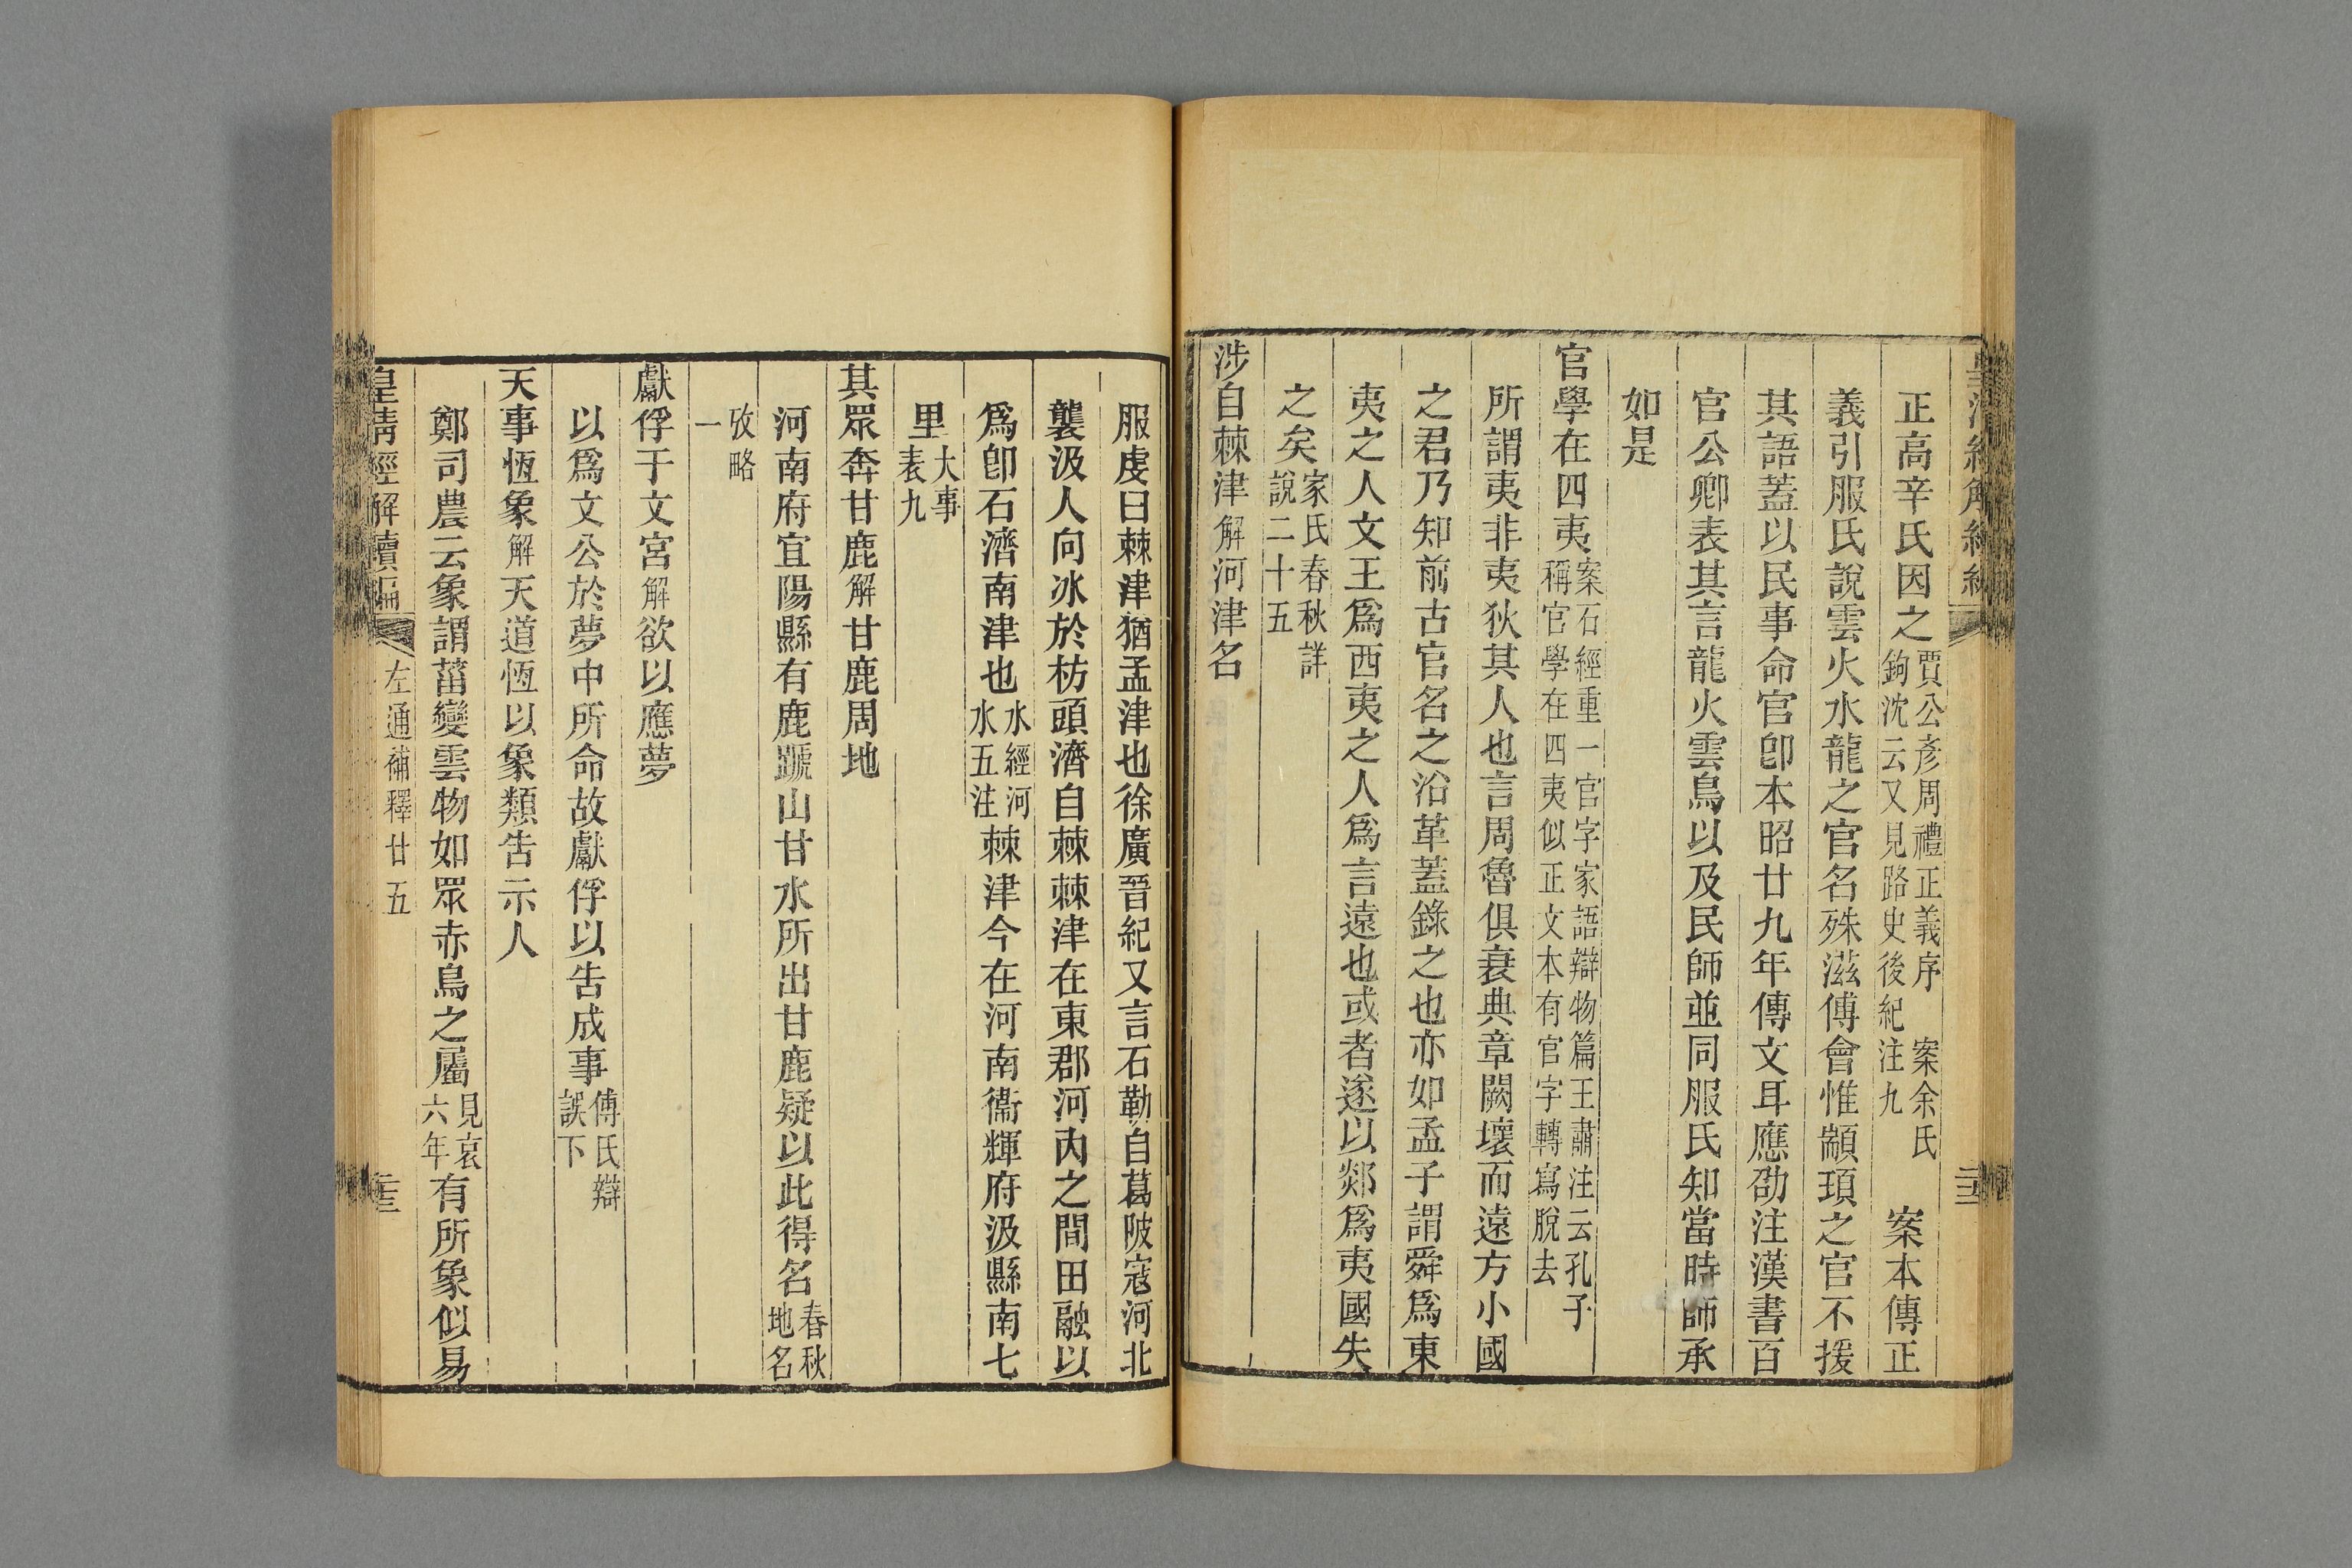 正高辛氏因之賈公彥周禮正義序　案余氏鉤沈云又見路史後紀注九　案本傳正
義引服氏說雲火水龍之官名殊滋傅會惟顓頊之官不援
其語蓋以民事命官卽本昭廿九年傳文耳應劭注漢書百
官公卿表其言龍火雲鳥以及民師並同服氏知當時師承
如是
官學在四夷案石經重一官字家語辯物篇王肅注云孔子稱官學在四夷似正文本有官字轉寫脫去
所謂夷非夷狄其人也言周魯俱衰典章闕壞而遠方小國
之君乃知前古官名之沿革蓋錄之也亦如孟子謂舜爲東
夷之人文王爲西夷之人爲言遠也或者遂以郯爲夷國失
之矣家氏春秋詳說二十五
涉自棘津解河津名
服虔曰棘津猶孟津也徐廣晉紀又言石勒自葛陂寇河北
襲汲人向冰於枋頭濟自棘棘津在東郡河內之間田融以
爲卽石濟南津也水經河水五注棘津今在河南衞輝府汲縣南七
里大事表九
其眾奔甘鹿解甘鹿周地
河南府宜陽縣有鹿蹏山甘水所出甘鹿疑以此得名春秋地名
攷略一
獻俘于文宮解欲以應夢
以爲文公於夢中所命故獻俘以告成事傅氏辯誤下
天事恆象解天道恆以象類告示人
鄭司農云象謂菑變雲物如眾赤鳥之屬見哀六年有所象似易
皇清經解續編
左通補釋廿五